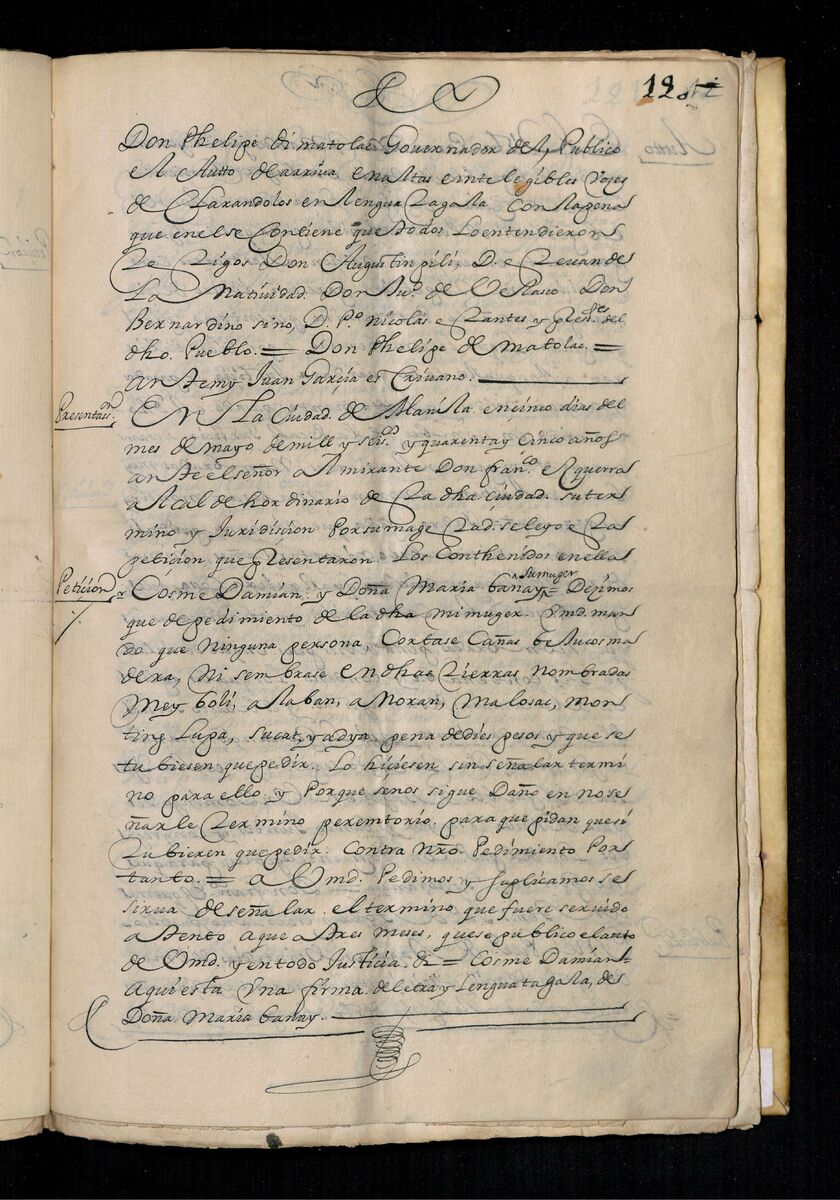 12
Don Phelipe dimatolac Gouernador del, Publico
el Autto de arriua en altas e intelegibles Voçes
de Clarandolos en lengua tagala Con la pena
que en el se Contiene que todos Lo entendieron
testigos Don Augustin pili, D.
La Natiuidad. Don Juº. de Velasco Don
Bernardino sino, D. Pº. Nicolas e estantes y Resᵗᵉˢ. del
dho. Pueblo. = Don Phelipe di matolac. =
antemy Juan Garçia esCriuano.
Presentassᵒⁿ
En La Ciudad. de Manila en çinco dias del
mes de mayo de mill y seisᵒˢ. y quarenta y Cinco años
ante el señor almirante Don franᶜᵒ. esguerra
alcalde hordinario de esta dha çiudad. su ter
mino y Juridiscion Por su magestad. se leyo esta
petiçion que Presentaron. Los Conthenidos en ella
Petiçion
Cosme Damian. y Doña Maria Ganay su muger = Dezimos
que de pedimiento de la dha mi muger. Vmd. man
do que Ninguna persona, Cortase Cañas bejucos ma
dera, Ni sembrase en dhas tierras nombradas
Meyboli, alaban, a Noran, malosac, mon
ting Lupa, sucat, y adya pena de dies pesos y que si
tubiesen que pedir. Lo hiçiesen sin señalar termi
no para ello. y Porque se nos sigue Daño en no se
ñarle termino peremtorio. para que pidan que si
tubieren que pedir. Contra Nro. Pedimiento Por
tanto. = a Vmd. Pedimos y suplicamos se
sirua de señalar. el termino que fuere seruido
atento a que a tres meses. que se publico el auto
de Vmd. y en todo Justiçia. &ᵃ = Cosme Damian =
aqui esta Vna firma. de letra y Lengua tagala, de
Doña. Maria Ganay.